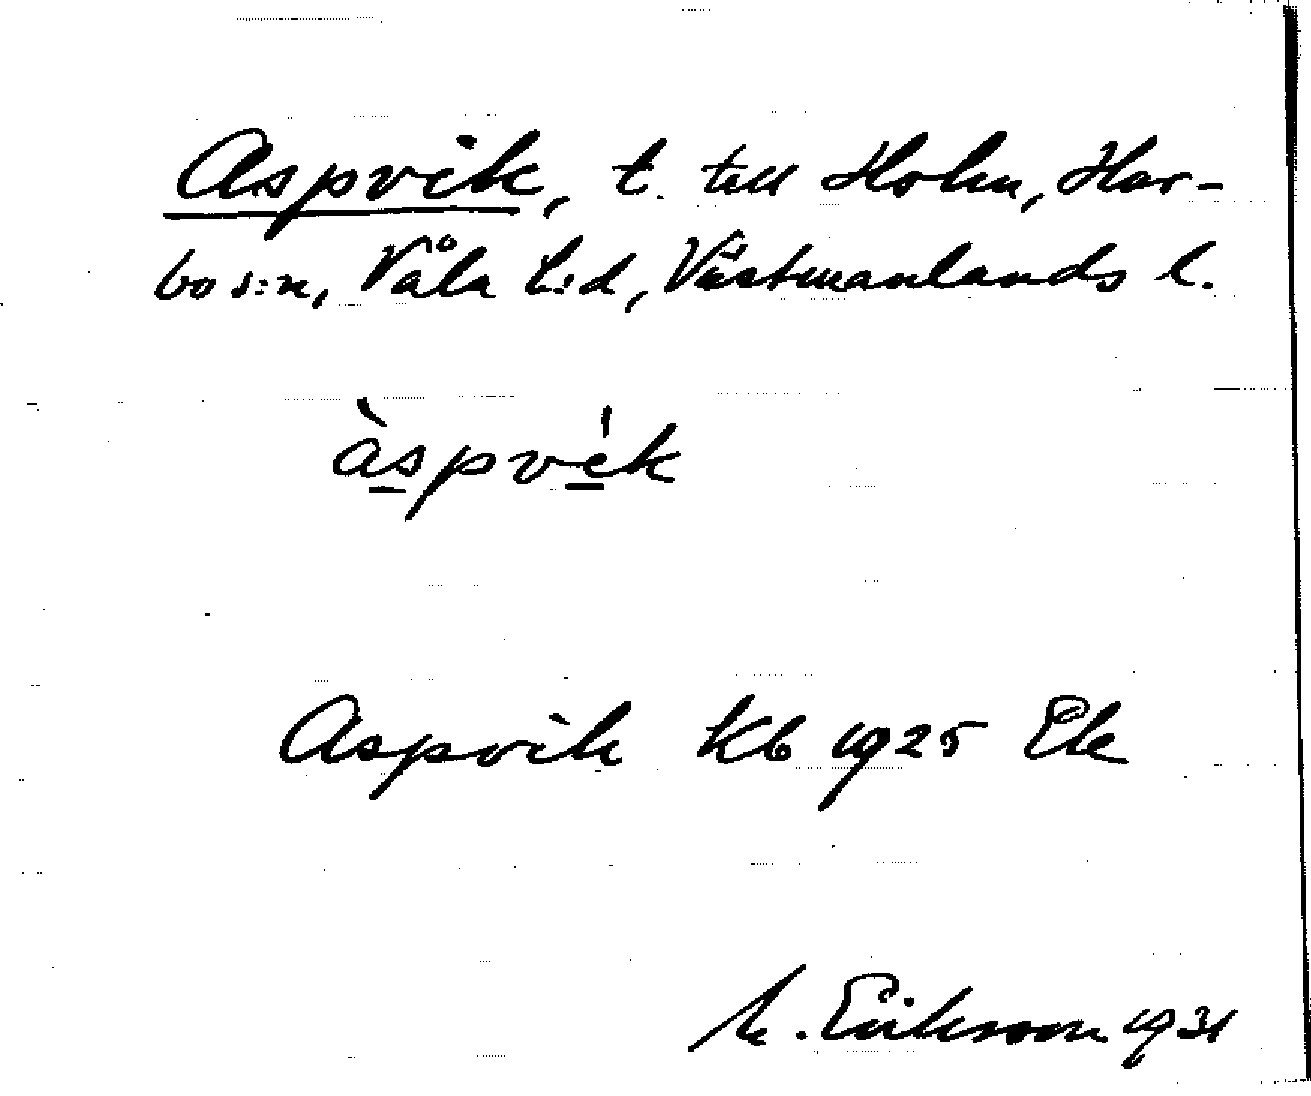 Aspvik, t. till Holm, Har-
bo s:n, Våla t:d, Västmanlands l.
àspvék
Aspvik Kb 1925 Ek
M. Eriksson 1931